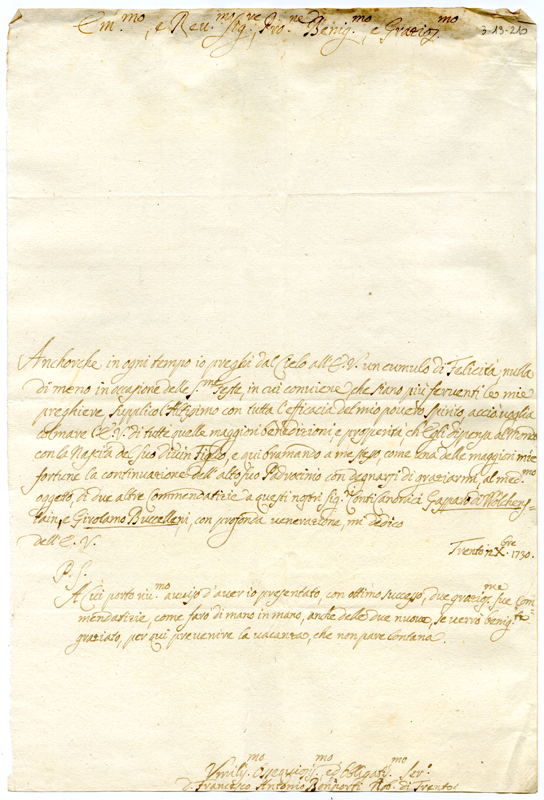 Em.mo, e Rev.mo Sig.re, Pro.ne Benig.mo, e Grazios.mo
3-13-210
Anchorche in ogni tempo io preghi dal Cielo all'E.V. un cumulo di Felicità, nulla
di meno in ocasione delle S.me Feste, in cui conviene, che siano più ferventi le mie
preghiere, supplico l'Altissimo con tutta l'efficacia del mio povero spirito, acciò voglia
colmare l'E.V. di tutte quelle maggiori benedizioni, e prosperità, ch'Egli dispensa al Mondo
con la Nascita del suo divin Figlio, e qui bramando a me stesso, come una delle maggiori mie
fortune la continuazione dell'alto suo Padrocinio con degnarsi di graziarmi, al med.mo
oggetto, di due altre Commendatizie a questi nostri Sig.ri Conti Canonici Gasparo di Wolchens-
stain, e Girolamo Buccelleni, con profonda venerazione, mi dedico
dell'E.V.
Trento 12 Xbre 1730.
P.S.
A cui porto riv.mo avviso d'aver io presentato, con ottimo successo, due grazios.me sue Com-
mendatizie, come farò di mano in mano, anche delle due nuove, se verrò benig.te
graziato, per qui prevenire la vacanza, che non pare lontana.
Umiliss.mo Ossequios.mo ed Obligatis.mo Ser.e
D. Francesco Antonio Bonporti Nob. di Trento